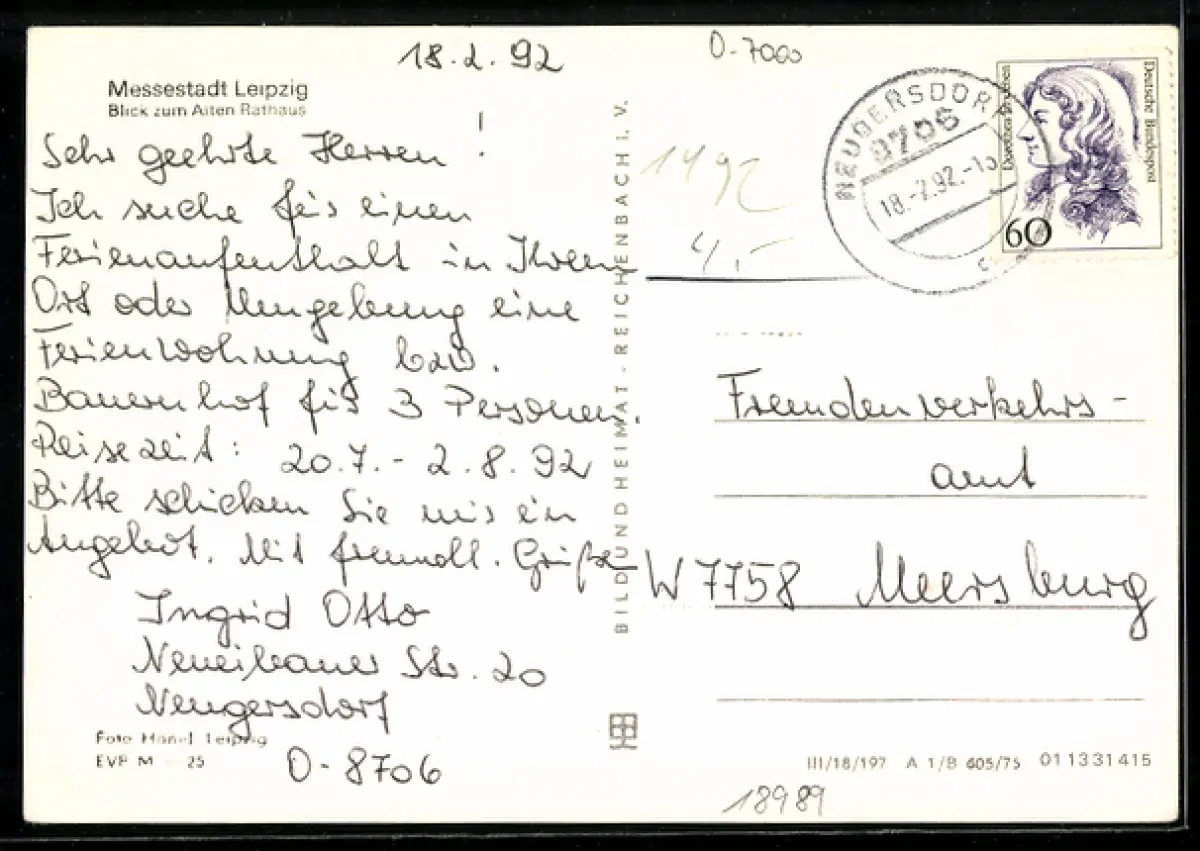 18.2.92
O-7000
Messestadt Leipzig
Blick zum Alten Rathaus
Sehr geehrte Herren!
Ich suche für einen
Ferienaufenthalt in Ihrem
Ort oder Umgebung eine
Ferienwohnung bzw.
Bauernhof für 3 Personen.
Reisezeit: 20.7.-2.8.92
Bitte schicken Sie mir ein
Angebot. Mit freundl. Grüßen
Ingrid Otto
Str. 20
Neugersdorf
O-8706
Foto Leipzig
EVP M 25
BILD UND HEIMAT · REICHENBACH I. V.
1492
4,-
NEUGERSDORF
8706
18.-2.92.-15
c
Deutsche Bundespost
60
Fremdenverkehrs-
amt
W 7758 Meersburg
III/18/197 A 1/B 605/75 01 1331415
18989